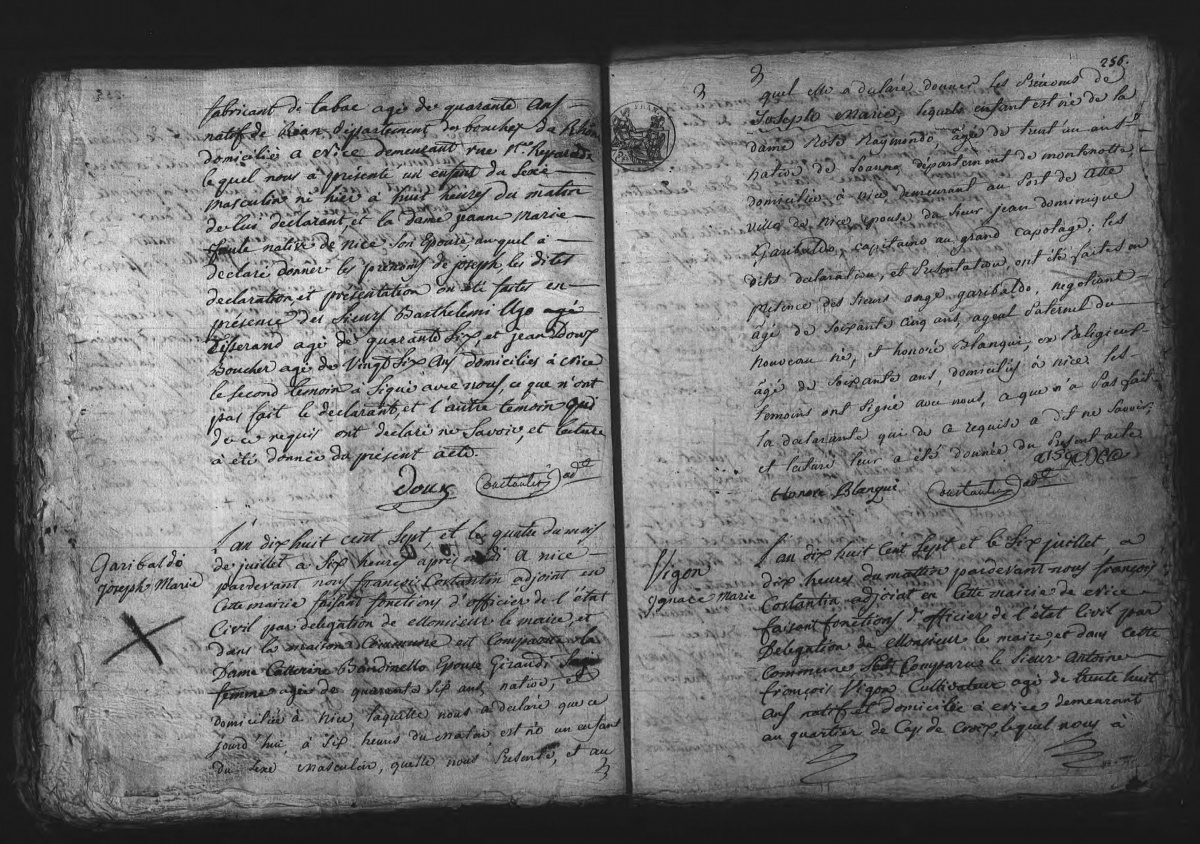 fabricant de tabac agé de quarante ans
natif de Département des bouches du Rhône
domicilié a Nice demeurant rue Ste Reparade
lequel nous a présenté un enfant du sexe
masculin né hier a huit heures du matin
de lui déclarant, et la dame jeanne Marie
native de nice son Epouse, au quel a
declaré donner les prénoms de joseph, les dites
declaration, et présentation on été faites en
présence des sieurs Barthelemi Ugo agé
Tisserand agé de quarante six, et jean Doux
Boucher agé de Vingt Six ans domiciliés à Nice
le second temoin à signé avec nous, ce que n'ont
pas fait le declarant, et l'autre temoin qui
de ce requis ont déclaré ne Savoir, et lecture
à été donnée du présent acte.
Doux Constantin adt
Garibaldo
Joseph Marie
L'an dix huit cent Sept et le quatre du mois
de juillet à Six heures après midi a nice
pardevant nous françois Costantin adjoint en
Cette mairie faisant fonctions d'officier de l'état
Civil par délégation de Monsieur le maire, et
dans la maison Commune est Comparue la
Dame Catterine Bandinello Epouse Girandi Sage
femme agée de quarante Six ans, native, et
domiciliée à Nice, laquelle nous a déclaré que ce
jourd'hui à Six heures du Matin est né un enfant
du Sexe Masculin, quelle nous Présente, et au
256.
quel elle a declaré donner les Prénoms de
Joseph Marie, lequel enfant est né de la
dame Rose Raymondo, agée de trent'un ans
native de Loanno, département de montenotte,
domiciliée à nice demeurant au Port de Cette
Ville de Nice, epouse du Sieur jean dominique
Garibaldo, Capitaine au grand Capotage; les
dites declaration, et Présentation, ont été faites en
présence des Sieurs ange garibaldo, negotiant
agé de Soixante cinq ans, agent Paternel du
nouveau né, et honoré Blanqui, ex Religieux
âgé de Soixante ans, domiciliés à nice les
temoins ont signé avec nous, ce que n'a Pas fait
la declarante qui de ce requise a dit ne Savoir;
et lecture leur a été donnée du Présent acte
Honore Blanqui Constantin adt
Vigon
Ignace Marie
L'an dix huit Cent Sept et le Six juillet, a
dix heures du mattin pardevant nous françois
Costantin adjoint en Cette mairie de Nice
faisant fonctions d'officier de l'état Civil par
Délégation de Monsieur le maire, et dans Cette
Commune est Comparu le Sieur Antoine
François Vigon Cultivateur agé de trente huit
ans natif et domicilié à Nice demeurant
au quartier de Cap de Croix, lequel nous à